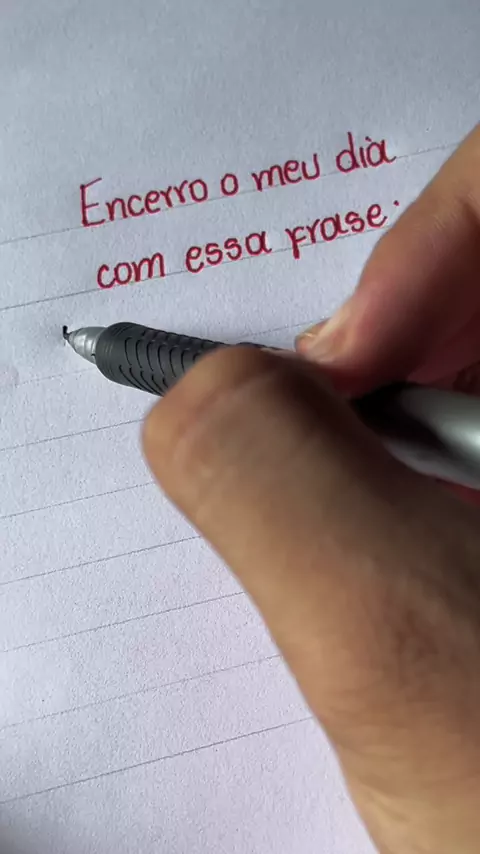 Encerro o meu dia
com essa frase: